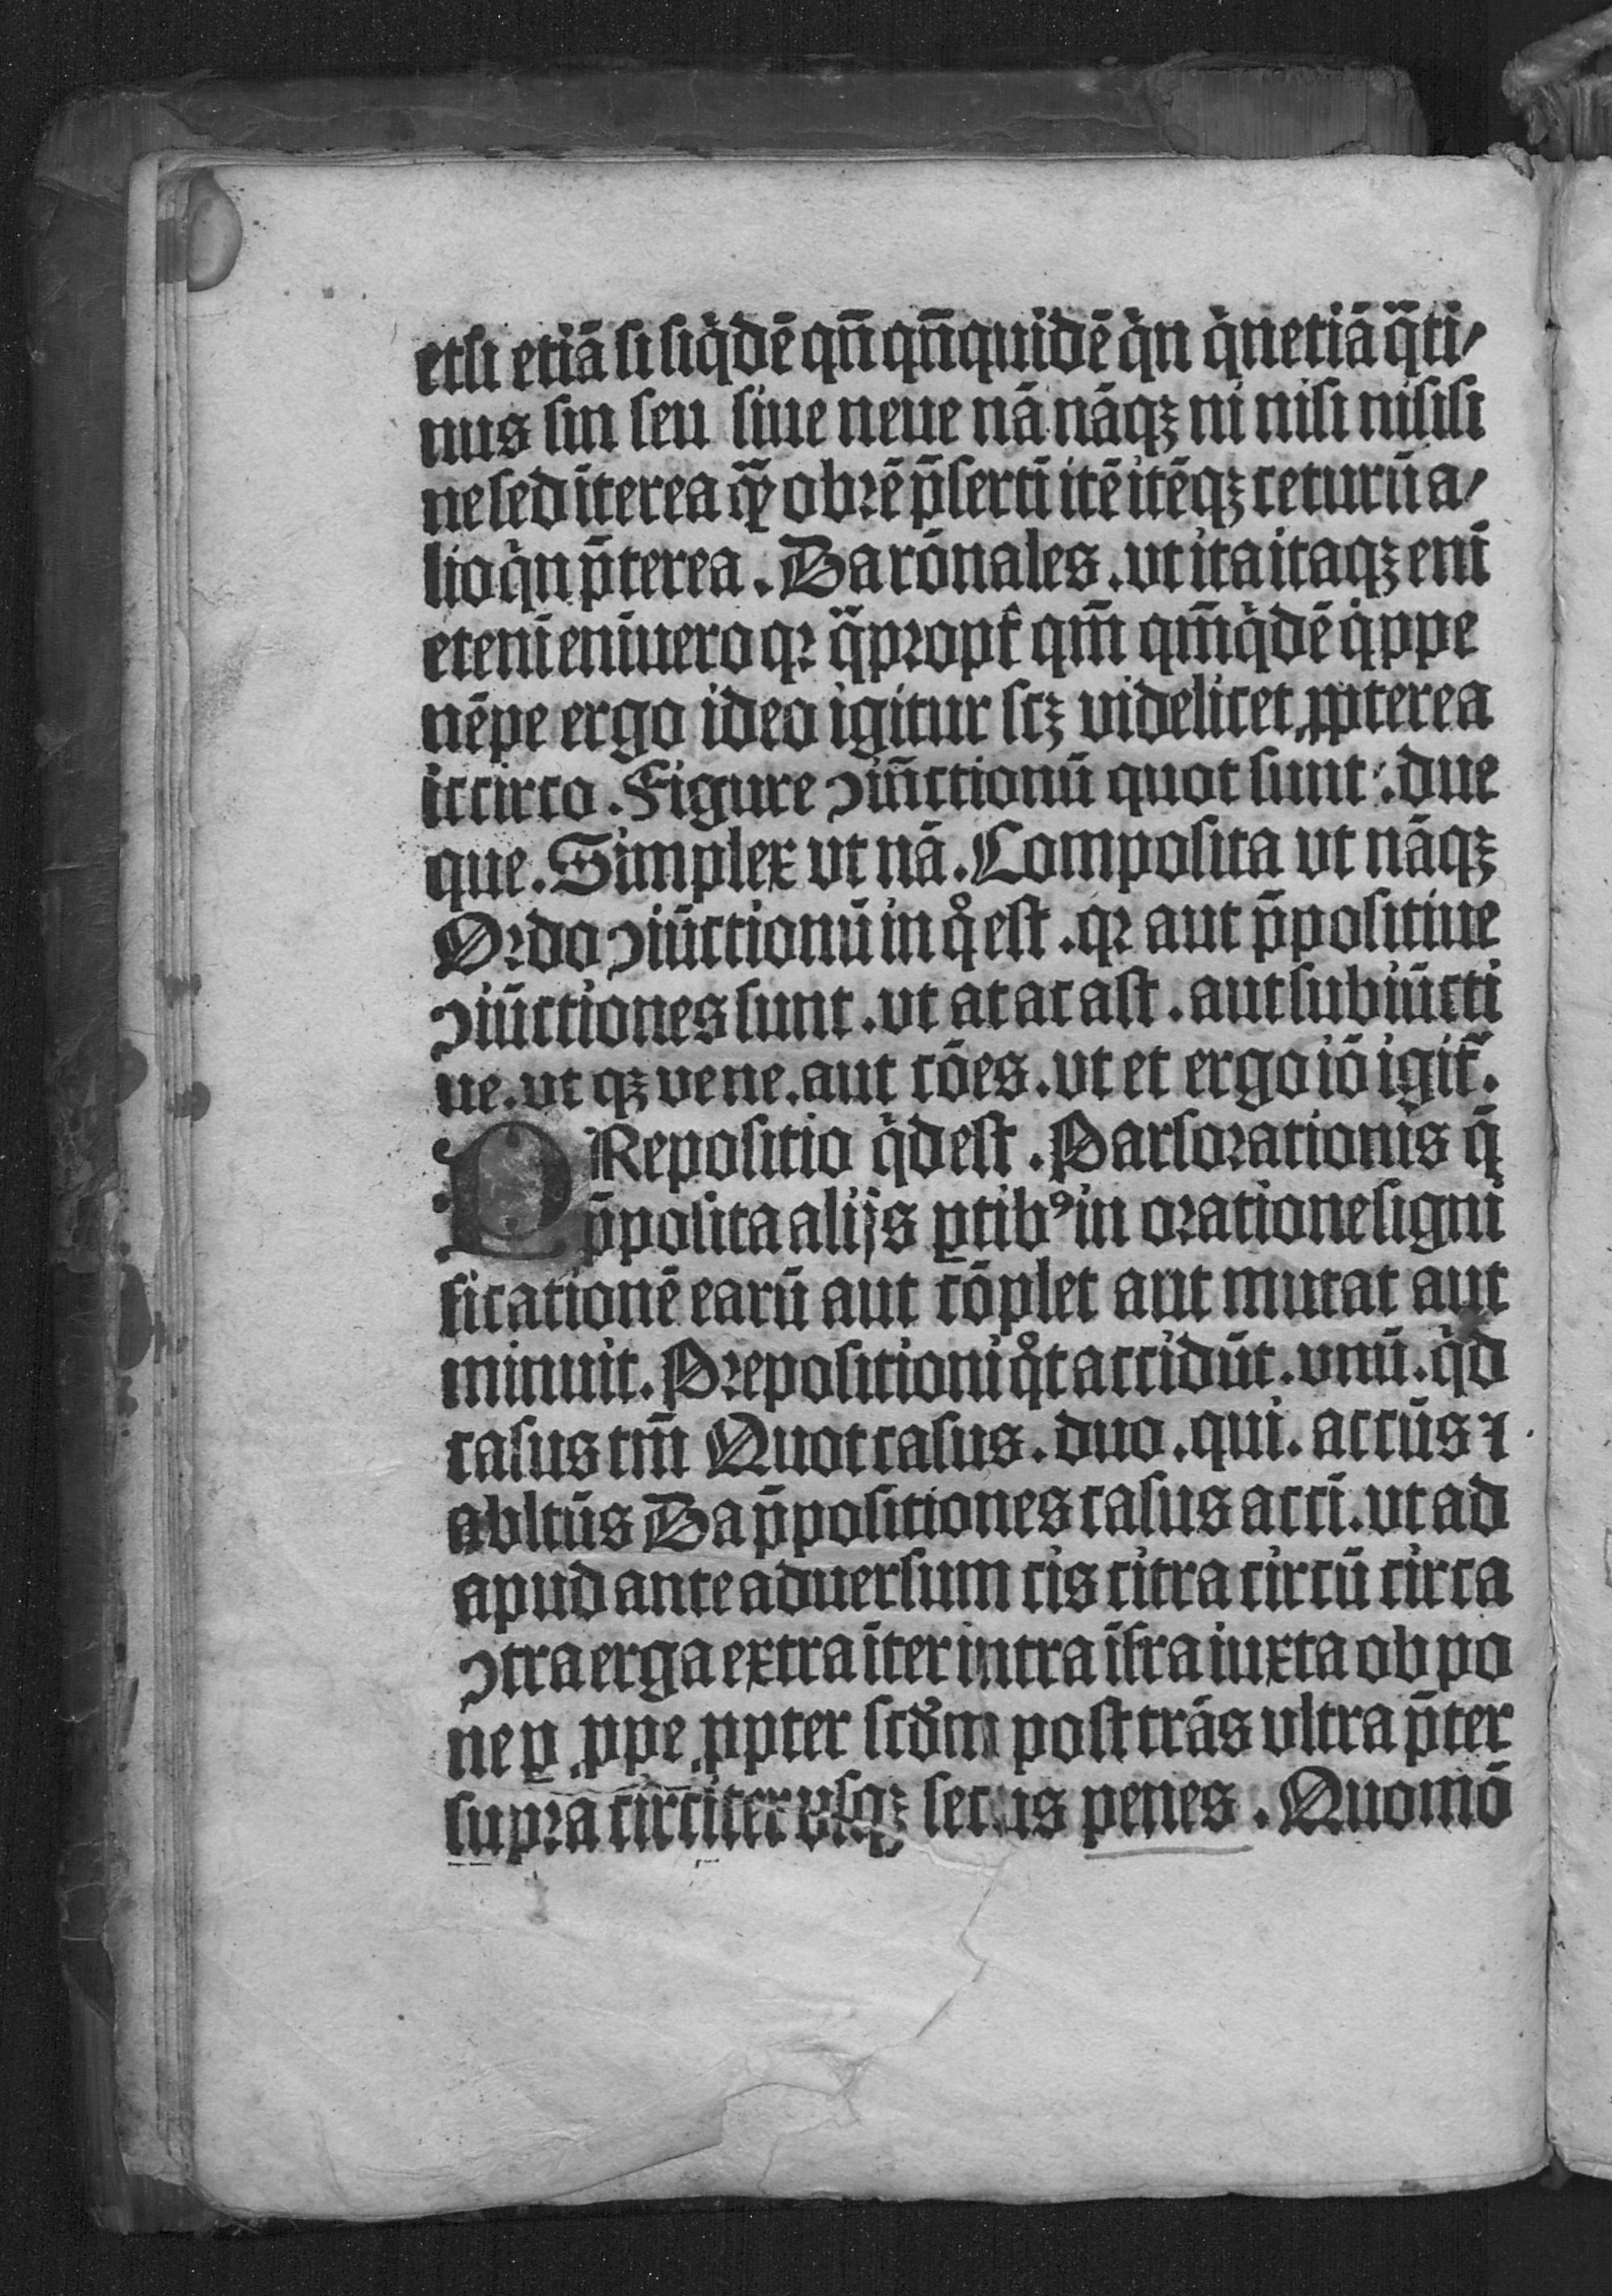 etsi etiā si siq̇dē qn̄ qn̄quidē q̇n q̇netiā q̄ti/
nus sin seu siue neue nā nāqꝫ ni nisi nisisi
ne sed īterea obrē p̄sertī itē itēqꝫ ceturū a/
lioq̇n p̄terea . Da rōnales . vt ita itaqꝫ enī
etenī enīuero qꝛ q̄propt̄ qm̄ qm̄q̇dē q̇ppe
nēpe ergo ideo igitur scꝫ videlicet ꝓpterea
iccirco . Figure ↄiūctionū quot sunt : due
que . Simplex vt nā . Composita vt nāqꝫ
Ordo ↄiūctionū in qͦ est . qꝛ aut p̄positiue
ↄiūctiones sunt . vt at ac ast . aut subiūcti
ue . vt qꝫ ve ne . aut cōes . vt et ergo iō igit̄ .
PRepositio q̇d est . Pars orationis q̄
p̄posita alijs ꝑtibꝰ in oratione signi
ficationē earū aut cōplet aut mutat aut
minuit . Prepositioni qͦt accidūt . vnū . q̇d
casus tm̄ Quot casus . duo . qui . accūs ⁊
abltūs Da p̄positiones casus acci̇̄ . vt ad
apud ante aduersum cis citra circū circa
ↄtra erga extra īter intra īfra iuxta ob po
ne ꝑ ꝓpe ꝓpter scd̄m post trās vltra p̄ter
supra circiter vsqꝫ secus penes . Quomō